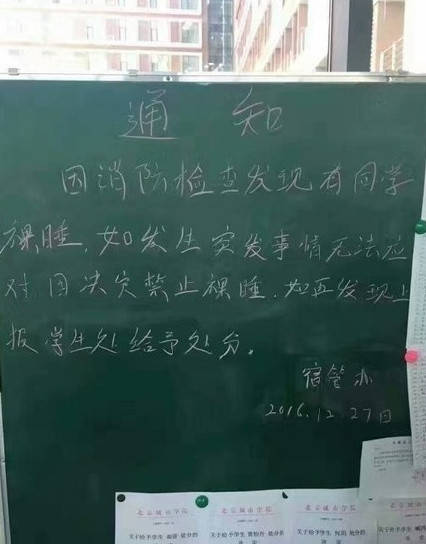 通知
因消防检查发现有同学
裸睡，如发生突发事情无法应
对因决定禁止裸睡，如再发现上
报学生处给予处分。
宿管办
2016.12.27日
北京城市学院
北京城市学院
北京城市学院
北京城市学院
关于给予学生
处分的
关于给予学生
处分的
关于给予学生
处分的
关于给予学生